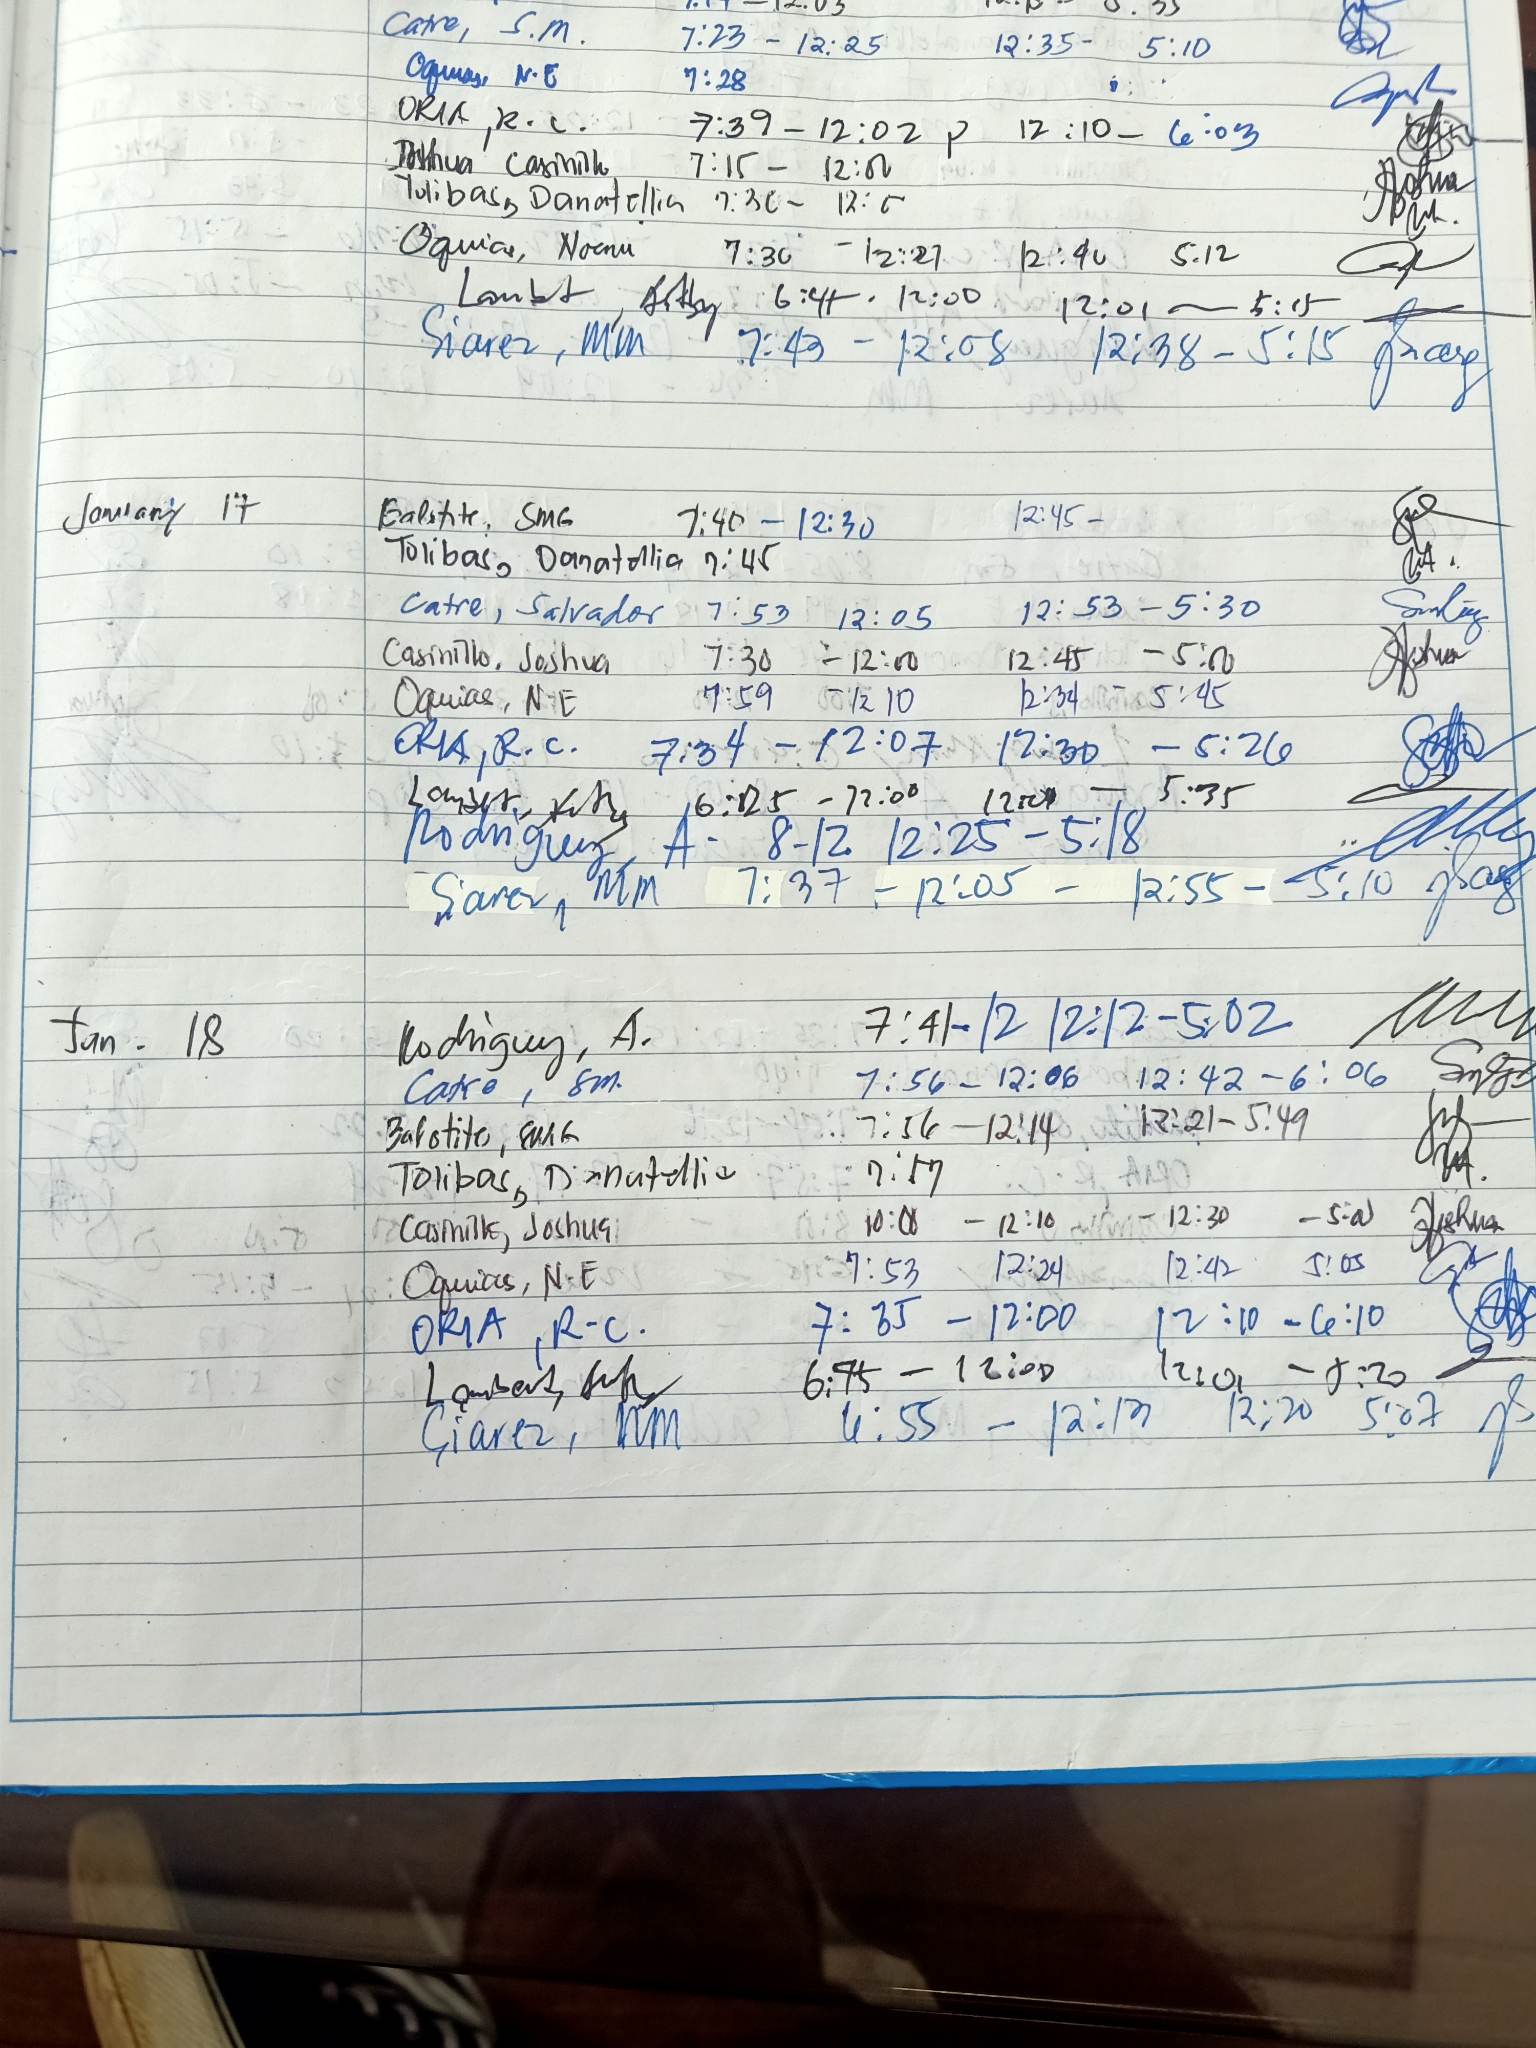 Catre, S.M. 7:23 - 12:25 12:35 - 5:10
Oquias, N.E 7:28
ORIA, R.C. 7:39 - 12:02 P 12:10 - 6:03
Joshua Casinillo 7:15 - 12:00
Tolibas, Danatellia 7:30 -
Oquias, 7:30 - 12:27 12:40 5:12
6:45 - 12:00 12:01 - 5:15
Siarez, MM 7:43 - 12:08 12:38 - 5:15
January 17 Balotite, SMG 7:40 - 12:30 12:45 -
Tolibas, Danatellia 7:45
Catre, Salvador 7:53 12:05 12:53 - 5:30
Casinillo, Joshua 7:30 - 12:00 12:45 - 5:00
Oquias, N-E 7:59 - 12 10 12:34 - 5:45
ORIA, R.C. 7:34 - 12:07 12:30 - 5:26
Lambert, - 12:00 - 5:35
Rodriguez, A - 8-12 12:25 - 5:18
Siarez, MM 7:37 - 12:05 - 12:55 - 5:10
Jan - 18 Rodriguez, A. 7:41 - 12 12:12 - 5:02
Catre, SM. 7:56 - 12:06 12:42 - 6:06
Balotite, SMG 7:56 - 12:14 12:21 - 5:49
Tolibas, Danatellia 7:57
Casinillo, Joshua 10:00 - 12:10 - 12:30 - 5:00
Oquias, N-E 7:53 12:24 12:42 5:05
ORIA, R-C. 7:35 - 12:00 12:10 - 6:10
Lambert, - 12:00 12:01 - 5:20
Siarez, MM 6:55 - 12:20 5:07